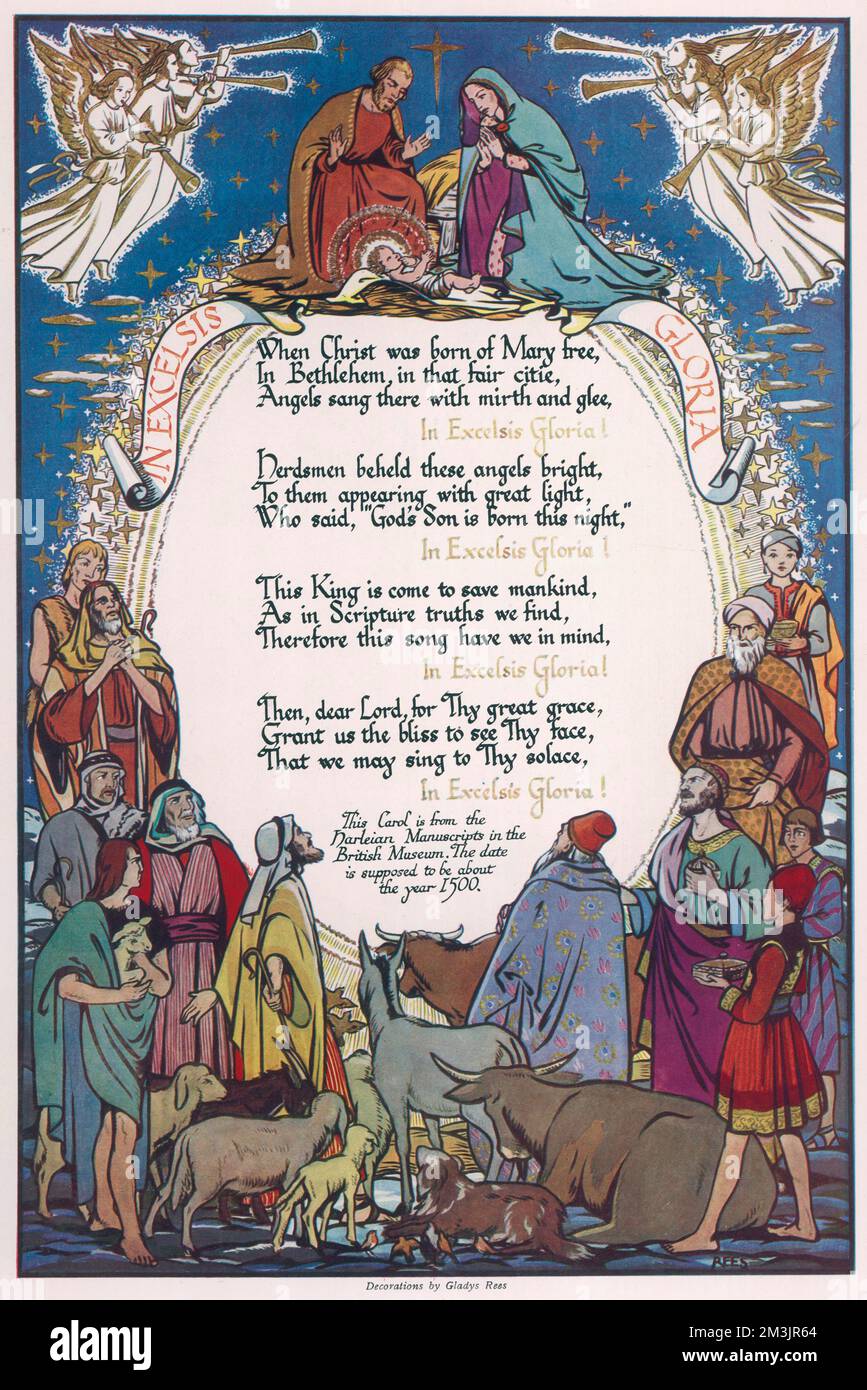 IN EXCELSIS
GLORIA
When Christ was born of Mary free,
In Bethlehem, in that fair citie,
Angels sang there with mirth and glee,
In Excelsis Gloria!
Herdsmen beheld these angels bright,
To them appearing with great light,
Who said, "God's Son is born this night,"
In Excelsis Gloria!
This King is come to save mankind,
As in Scripture truths we find,
Therefore this song have we in mind,
In Excelsis Gloria!
Then, dear Lord, for Thy great grace,
Grant us the bliss to see Thy face,
That we may sing to Thy solace,
In Excelsis Gloria!
This Carol is from the
Harleian Manuscripts in the
British Museum. The date
is supposed to be about
the year 1500.
REES
Decorations by Gladys Rees
alamy
Image ID: 2M3JR64
www.alamy.com